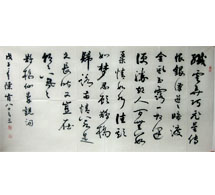 纖雲弄巧飛星傳
恨銀漢迢迢暗渡
金風玉露一相逢
便勝卻人間無數
柔情似水佳期
如夢忍顧鵲橋
歸路兩情若是
久長時又豈在
朝朝暮暮
鵲橋仙秦觀詞